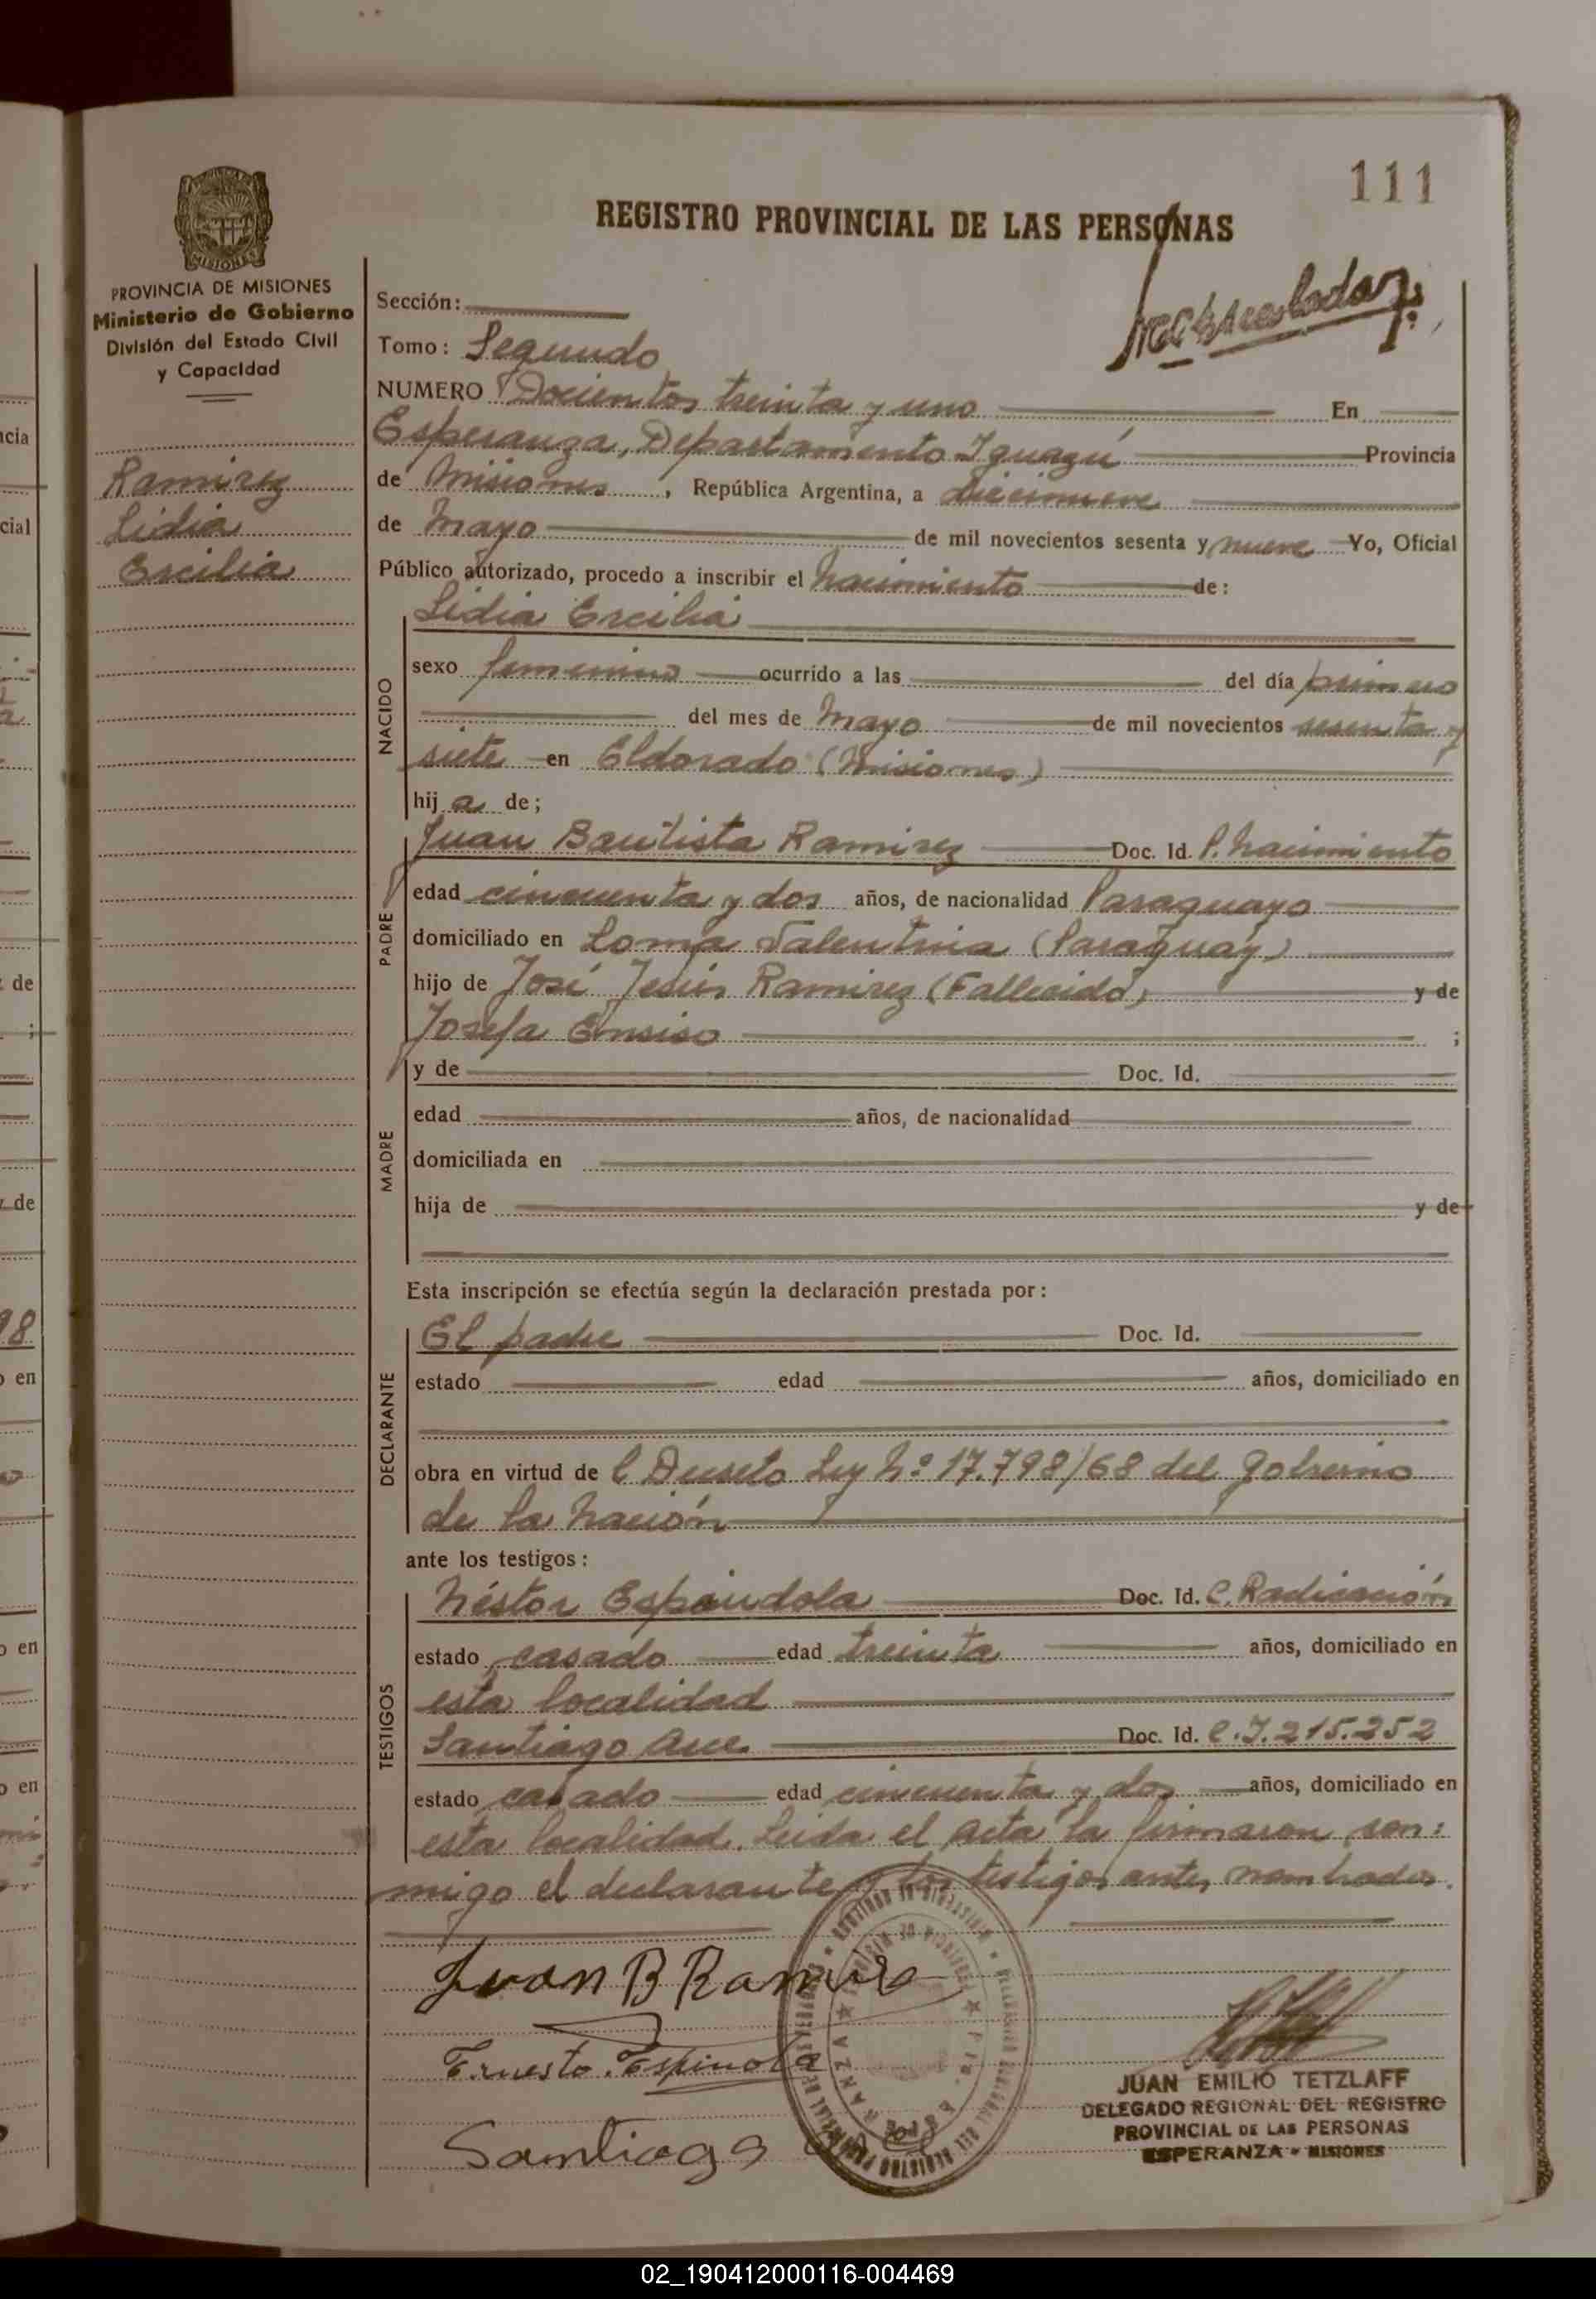 111
REGISTRO PROVINCIAL DE LAS PERSONAS
PROVINCIA DE MISIONES
Ministerio de Gobierno
División del Estado Civil
y Capacidad
Ramirez
Lidia
Ercilia
Sección:
Tomo: Segundo
NUMERO Docientos treinta y uno En
Esperanza, Departamento Iguazú Provincia
de Misiones, República Argentina, a diecinueve
de Mayo de mil novecientos sesenta y nueve Yo, Oficial
Público autorizado, procedo a inscribir el Nacimiento de:
Lidia Ercilia
NACIDO
sexo femenino ocurrido a las del día primero
del mes de Mayo de mil novecientos sesenta y
siete en Eldorado (Misiones)
hij a de;
PADRE
Juan Bautista Ramirez Doc. Id. P. Nacimiento
edad cincuenta y dos años, de nacionalidad Paraguayo
domiciliado en Loma Valentina (Paraguay)
hijo de José Jesús Ramirez (Fallecido) y de
Josefa Ensiso ;
MADRE
y de Doc. Id.
edad años, de nacionalidad
domiciliada en
hija de y de
Esta inscripción se efectúa según la declaración prestada por:
DECLARANTE
El padre Doc. Id.
estado edad años, domiciliado en
obra en virtud de l Decreto Ley Nº 17.798/68 del Gobierno
de la Nación
ante los testigos:
TESTIGOS
Néstor Espíndola Doc. Id. C. Radicación
estado casado edad treinta años, domiciliado en
esta localidad
Santiago Doc. Id. C.I. 215.252
estado casado edad cincuenta y dos años, domiciliado en
esta localidad. Leida el acta la firmaron con:
migo el declarante y los testigos antes nombrados.
Juan B Ramirez
Ernesto Espinola
Santiago
JUAN EMILIO TETZLAFF
DELEGADO REGIONAL DEL REGISTRO
PROVINCIAL DE LAS PERSONAS
ESPERANZA - MISIONES
02_190412000116-004469